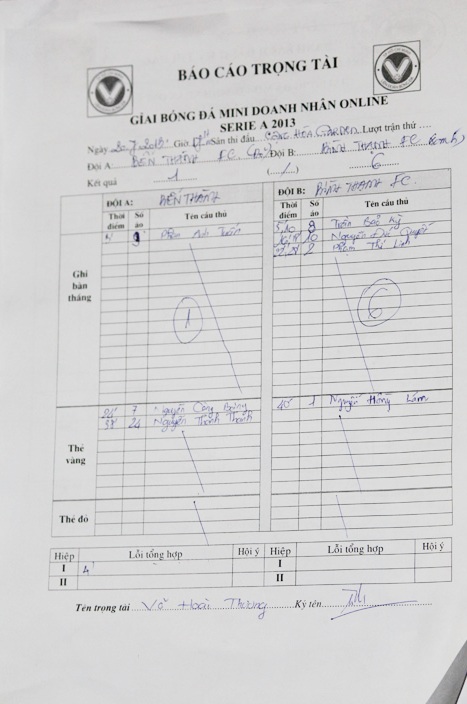 BÁO CÁO TRỌNG TÀI
GIẢI BÓNG ĐÁ MINI DOANH NHÂN ONLINE
SERIE A 2013
Ngày 20.7.2013 Giờ 17h Sân thi đấu CỘNG HÒA GARDEN Lượt trận thứ ....
Đội A: BẾN THÀNH FC Đội B: BÌNH THẠNH FC
Kết quả 1 (..../....) 6
ĐỘI A: BẾN THÀNH ĐỘI B: BÌNH THẠNH FC.
Thời điểm Số áo Tên cầu thủ Thời điểm Số áo Tên cầu thủ
Ghi bàn thắng
9 Anh Tuấn 5',10 9 Trần Bắc Kỳ
10 Nguyễn Đức Quyết
2 Phạm Thế Linh
1 6
Thẻ vàng
7 Nguyễn Công 40' 1 Nguyễn Hồng Lâm
38' 24 Nguyễn Thành Thanh
Thẻ đỏ
Hiệp Lỗi tổng hợp Hội ý Hiệp Lỗi tổng hợp Hội ý
I 4' I
II II
Tên trọng tài Võ Hoài Thương Ký tên